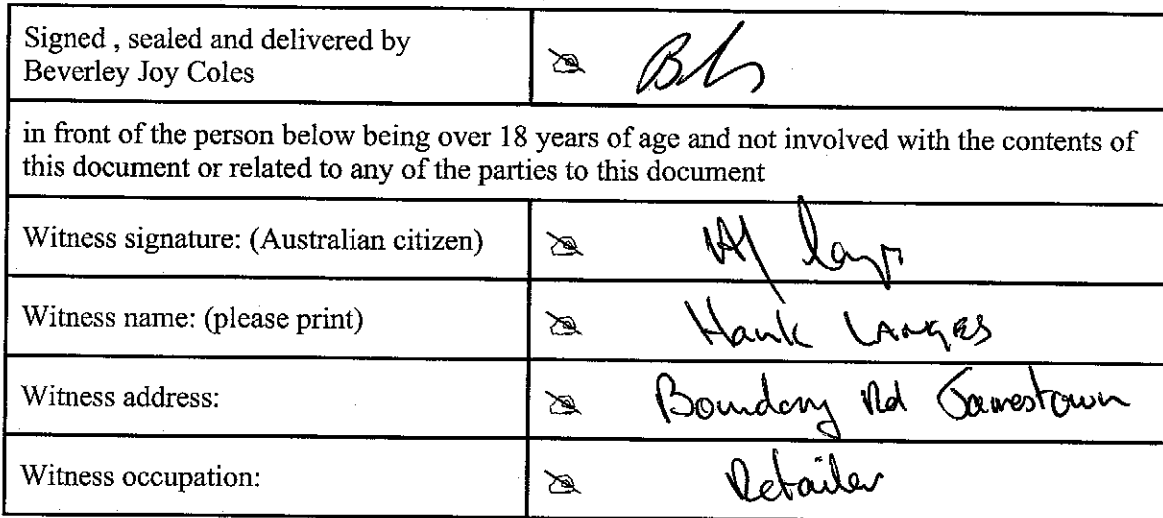 Signed , sealed and delivered by
Beverley Joy Coles
in front of the person below being over 18 years of age and not involved with the contents of
this document or related to any of the parties to this document
Witness signature: (Australian citizen)
Witness name: (please print) Hank LANGES
Witness address: Boundary Rd Jamestown
Witness occupation: Retailer